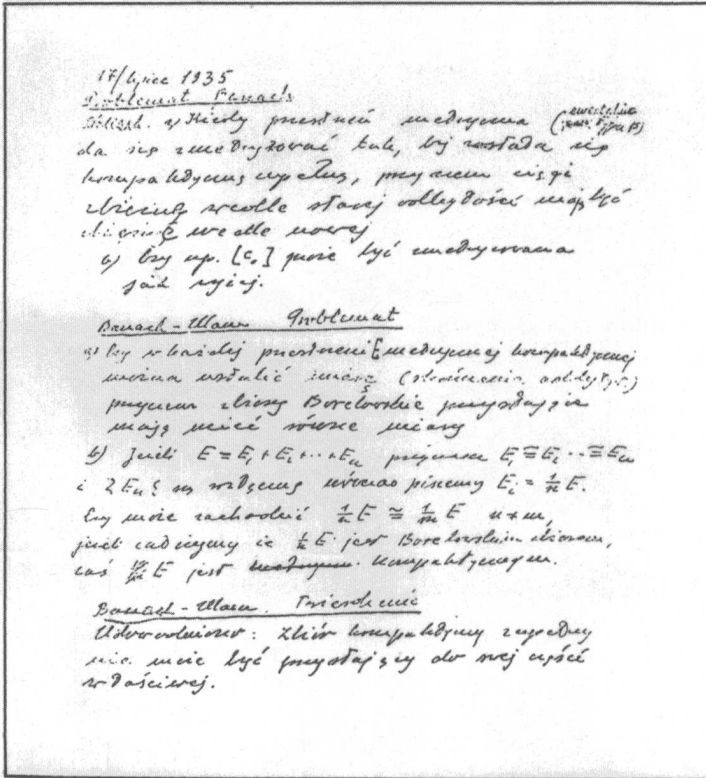 17/lipiec 1935
Problemat Banach
a) Kiedy przestrzeń metryczna (ewentualnie typu B)
da się zmetryzować tak, by została się
kompaktyczną zupełną, przyczem ciągi
zbieżne wedle starej odległości mają być
zbieżne wedle nowej
b) Czy np. [c₀] może być zmetryzowana
jak wyżej.
Banach-Ulam Problemat
a) Czy w każdej przestrzeni E metrycznej kompaktycznej
można ustalić miarę (skończenie addytyw.)
przyczem zbiory Borelowskie przystające
mają mieć równe miary
b) Jeśli E = E₁ + E₂ + ... + Eₙ przyczem E₁ ≅ E₂ ... ≅ Eₙ
i {Eₙ} są rozłączne wówczas piszemy Eᵢ = 1/n E.
Czy może zachodzić 1/n E ≅ 1/m E n ≠ m,
jeśli zaś E jest kompaktycznym.
Banach-Ulam. Twierdzenie
Udowodniono: Zbiór kompaktyczny zupełny
nie może być przystający do swej części
właściwej.